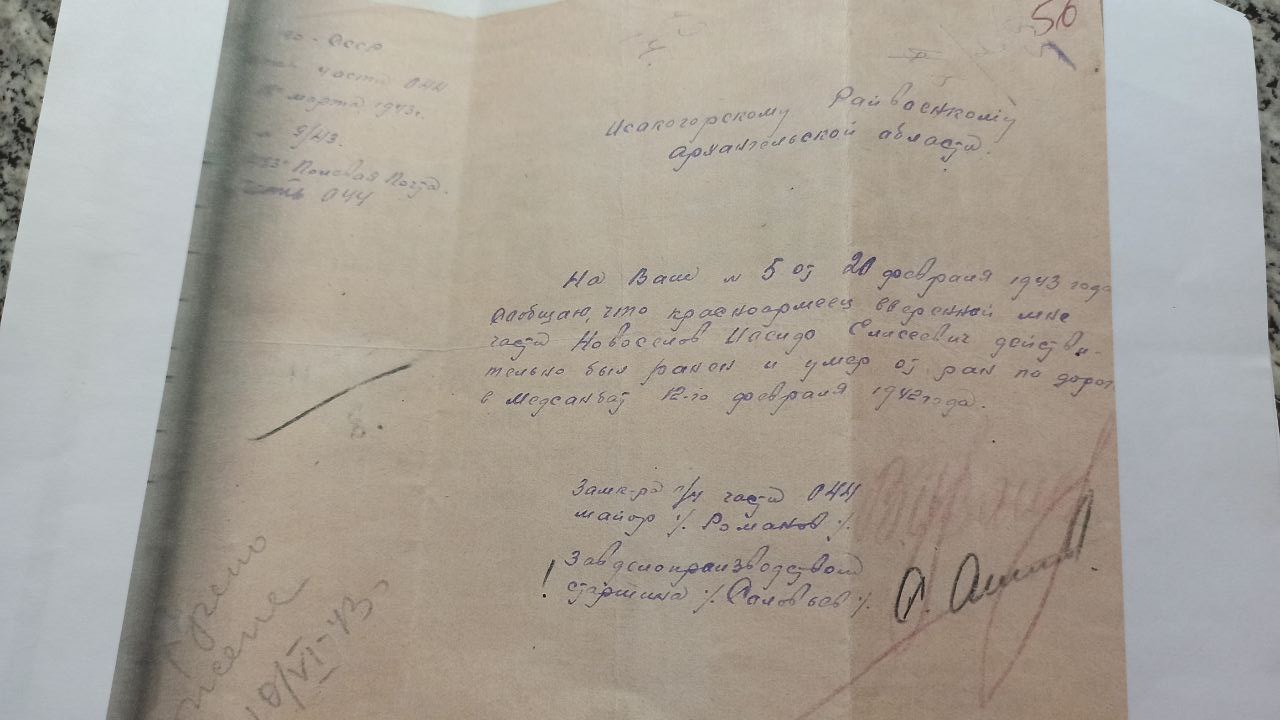 56
СССР
части 044
марта 1943г.
9/43.
Полевая Почта
044
Исакогорскому Райвоенкому
Архангельской области.
На Ваш № 5 от 20 февраля 1943 года
сообщаю, что красноармеец вверенной мне
части Новоселов Елисеевич действи-
тельно был ранен и умер от ран по дорог
в Медсанбат 12-го февраля 1942 года.
Замк-ра п/ч части 044
майор /. Романов /.
Завделопроизводством
! старшина /. Соловьев /.
жене
VI-43